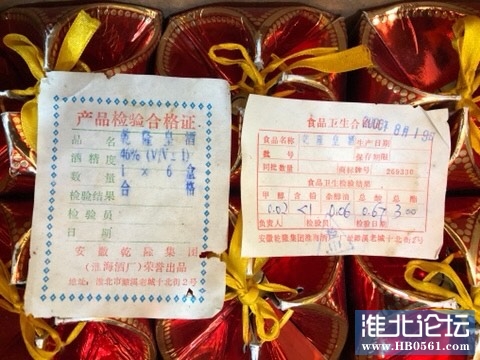 产品检验合格证
品名 乾隆皇酒
酒精度 46% (V/V±1)
数量 1×6
检验结果 合格
检验员
日期
安徽乾隆集团
(淮海酒厂)荣誉出品
地址：淮北市濉溪老城十北街2号
食品卫生合
8月1日
食品名称 生产日期
批号 保存期限
同批数量 商标牌号
食品卫生检验结果
甲醇 杂醇油 总酸 总酯
0.02 <1 0.06 0.67 3.00
负责人 检验员 检验日期
安徽乾隆集团淮海酒 濉溪老城十北街2号
淮北论坛
www.HB0561.com